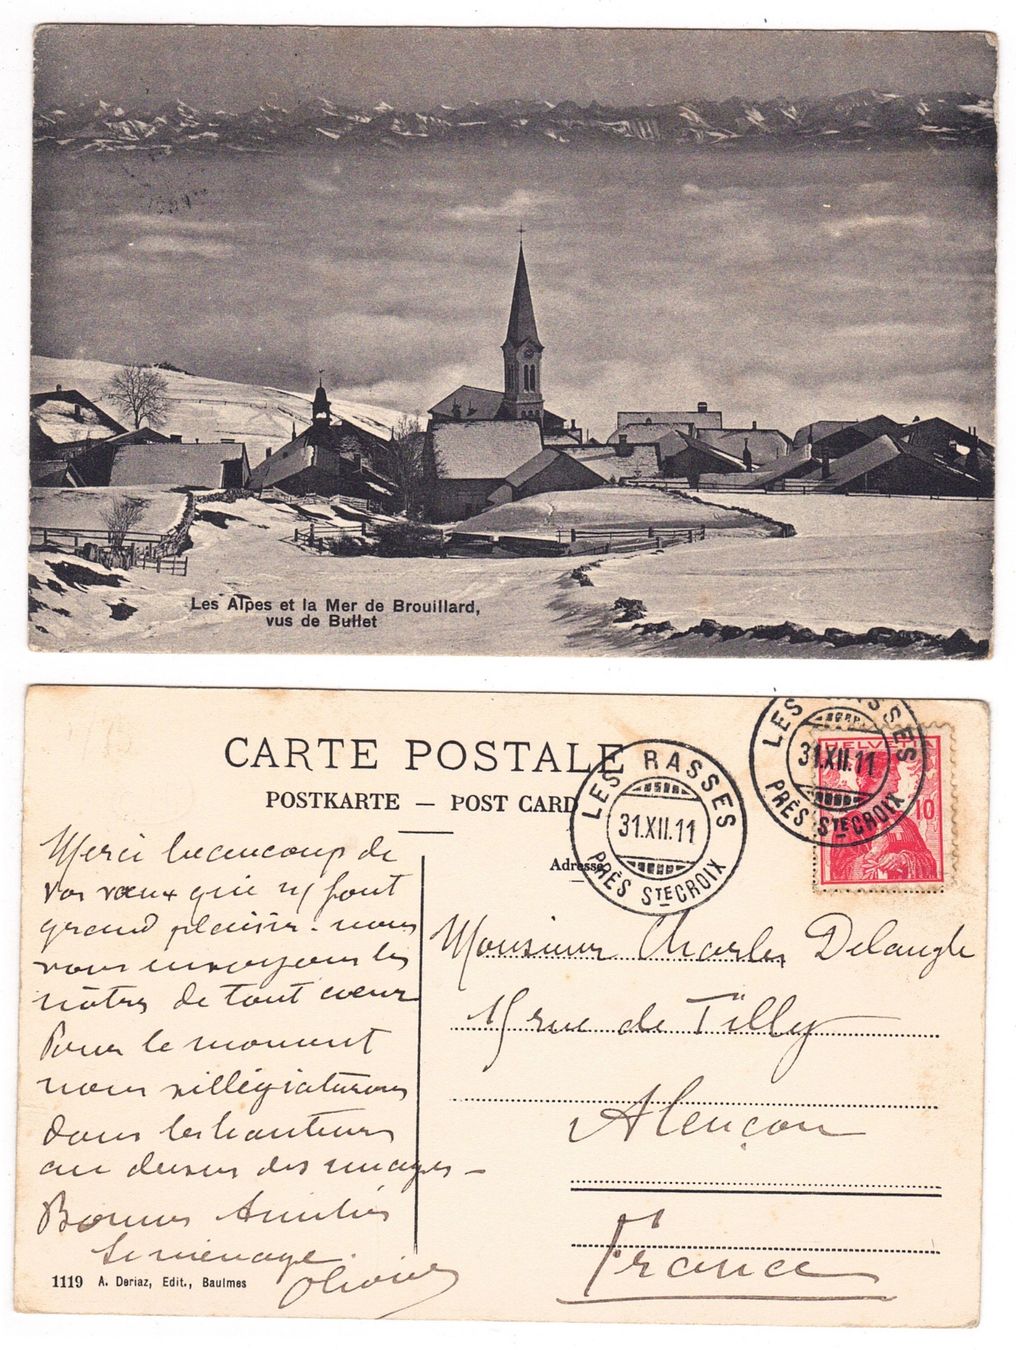 Les Alpes et la Mer de Brouillard,
vus de Bullet
CARTE POSTALE
POSTKARTE — POST CARD
LES RASSES
31.XII.11
PRÈS STE CROIX
LES RASSES
31.XII.11
PRÈS STE CROIX
HELVETIA
10
Adresse
Merci beaucoup de
vos vœux qui n/ font
grand plaisir. nous
vous envoyons les
nôtres de tout cœur
Pour le moment
nous villégiaturons
dans les hauteurs
au dessus des nuages —
Bonnes Amitiés
Le ménage
Olivier
Monsieur Charles Delangle
rue de Tilly
Alençon
France
1119 A. Deriaz, Edit., Baulmes